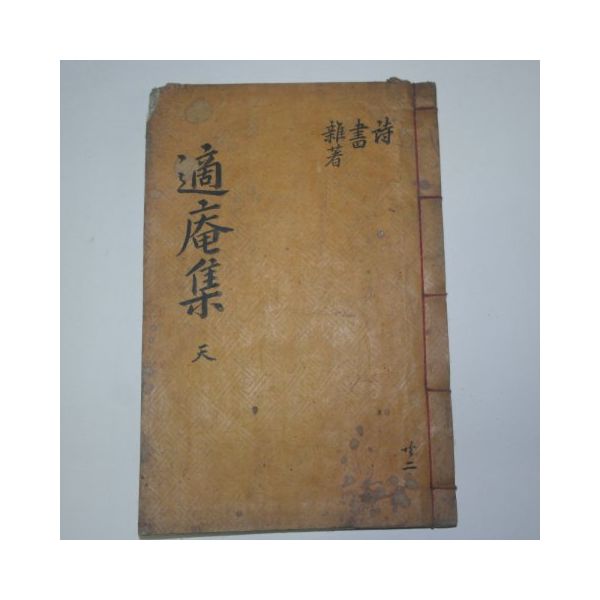 詩
書
雜著
適庵集 天
共二